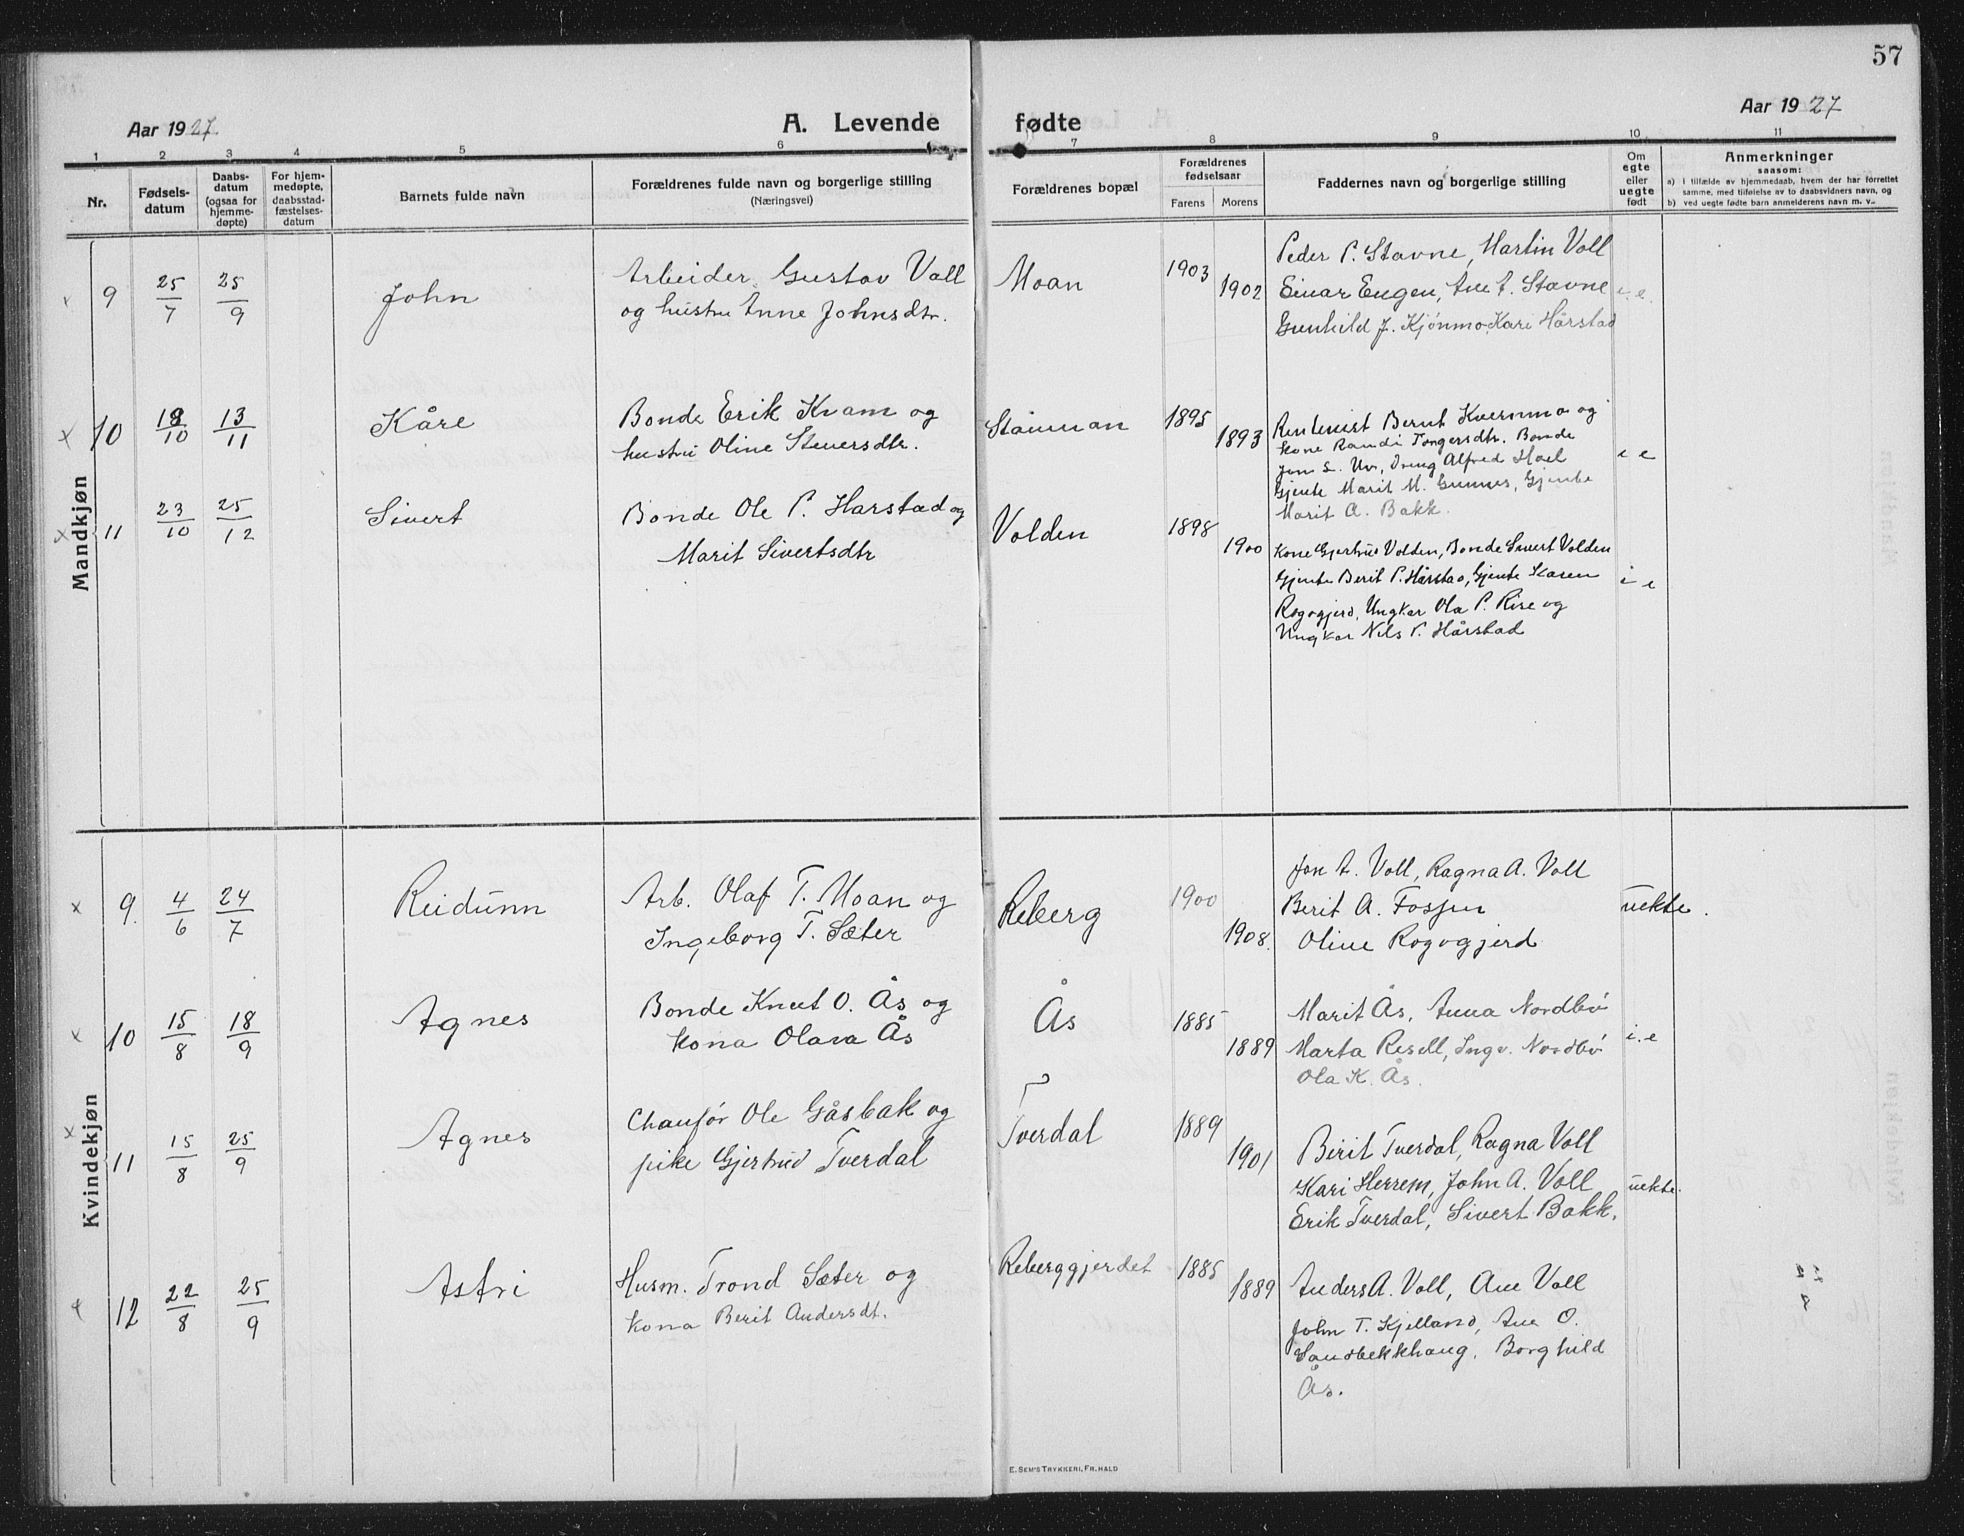 57
Aar 1927
A. Levende fødte
Aar 1927
1 2 3 4 5 6 7 8 9 10 11
Nr.
Fødsels-
datum
Daabs-
datum
(ogsaa for
hjemme-
døpte)
For hjem-
medøpte,
daabsstad-
fæstelses-
datum
Barnets fulde navn
Forældrenes fulde navn og borgerlige stilling
(Næringsvei)
Forældrenes bopæl
Forældrenes
fødselsaar
Farens Morens
Faddernes navn og borgerlige stilling
Om
egte
eller
uegte
født
Anmerkninger
saasom:
a) i tilfælde av hjemmedaab, hvem der har forrettet
samme, med tilføielse av to daabsvidners navn, og
b) ved uegte fødte barn anmelderens navn m. v.
Mandkjøn
9 25/7 25/9 John
Arbeider Gustav Voll
og hustru Anne Johnsdtr.
Moan 1903 1902
Peder P. Stavne, Martin Voll
Einar Engen, Ane A. Stavne
Gunhild J. Kjønmo, Kari Hårstad
i. e.
10 18/10 13/11 Kåre
Bonde Erik Kvam og
hustru Oline Steuersdtr.
1895 1893
Bernt Kvernmo og
kone Randi Bonde
Jon L. Alfred Hoel
Gjente Marit M. Gunnes, Gjente
Marit A. Bakk.
i e
11 23/10 25/12 Sivert
Bonde Ole P. Harstad og
Marit Sivertsdtr
Volden 1898 1900
Kone Gjertrud Volden, Bonde Sivert Volden
Gjente Berit P. Hårstad, Gjente Karen
Rogogjerd, Ungkar Ola P. Rise og
Ungkar Nils P. Hårstad
i e
Kvindekjøn
9. 4/6 24/7 Reidunn
Arb. Olaf T. Moan og
Ingeborg T. Sæter
Reberg 1900 1908.
Jon A. Voll, Ragna A. Voll
Berit A. Fosjen
Oline Rogogjerd
uekte.
10 15/8 18/9 Agnes
Bonde Knut O. Ås og
kona Olava Ås
Ås 1885 1889
Marit Ås, Anna Nordbø
Marta Resell, Ingv. Nordbø
Ola K. Ås.
i. e
11 15/8 25/9 Agnes
Chaufør Ole Gåsbak og
pike Gjertrud Tverdal
Tverdal 1889 1901
Birit Tverdal, Ragna Voll
Kari Herrem, John A. Voll
Erik Tverdal, Sivert Bakk.
uekte.
12 22/8 25/9 Astri
Husm. Trond Sæter og
kona Berit Andersdt.
Reberggjerdet 1885 1889
Anders A. Voll, Ane Voll
John T. Kjelland, Ane O.
Sandbekkhaug, Borghild
Ås.
E. SEM'S TRYKKERI, FR.HALD